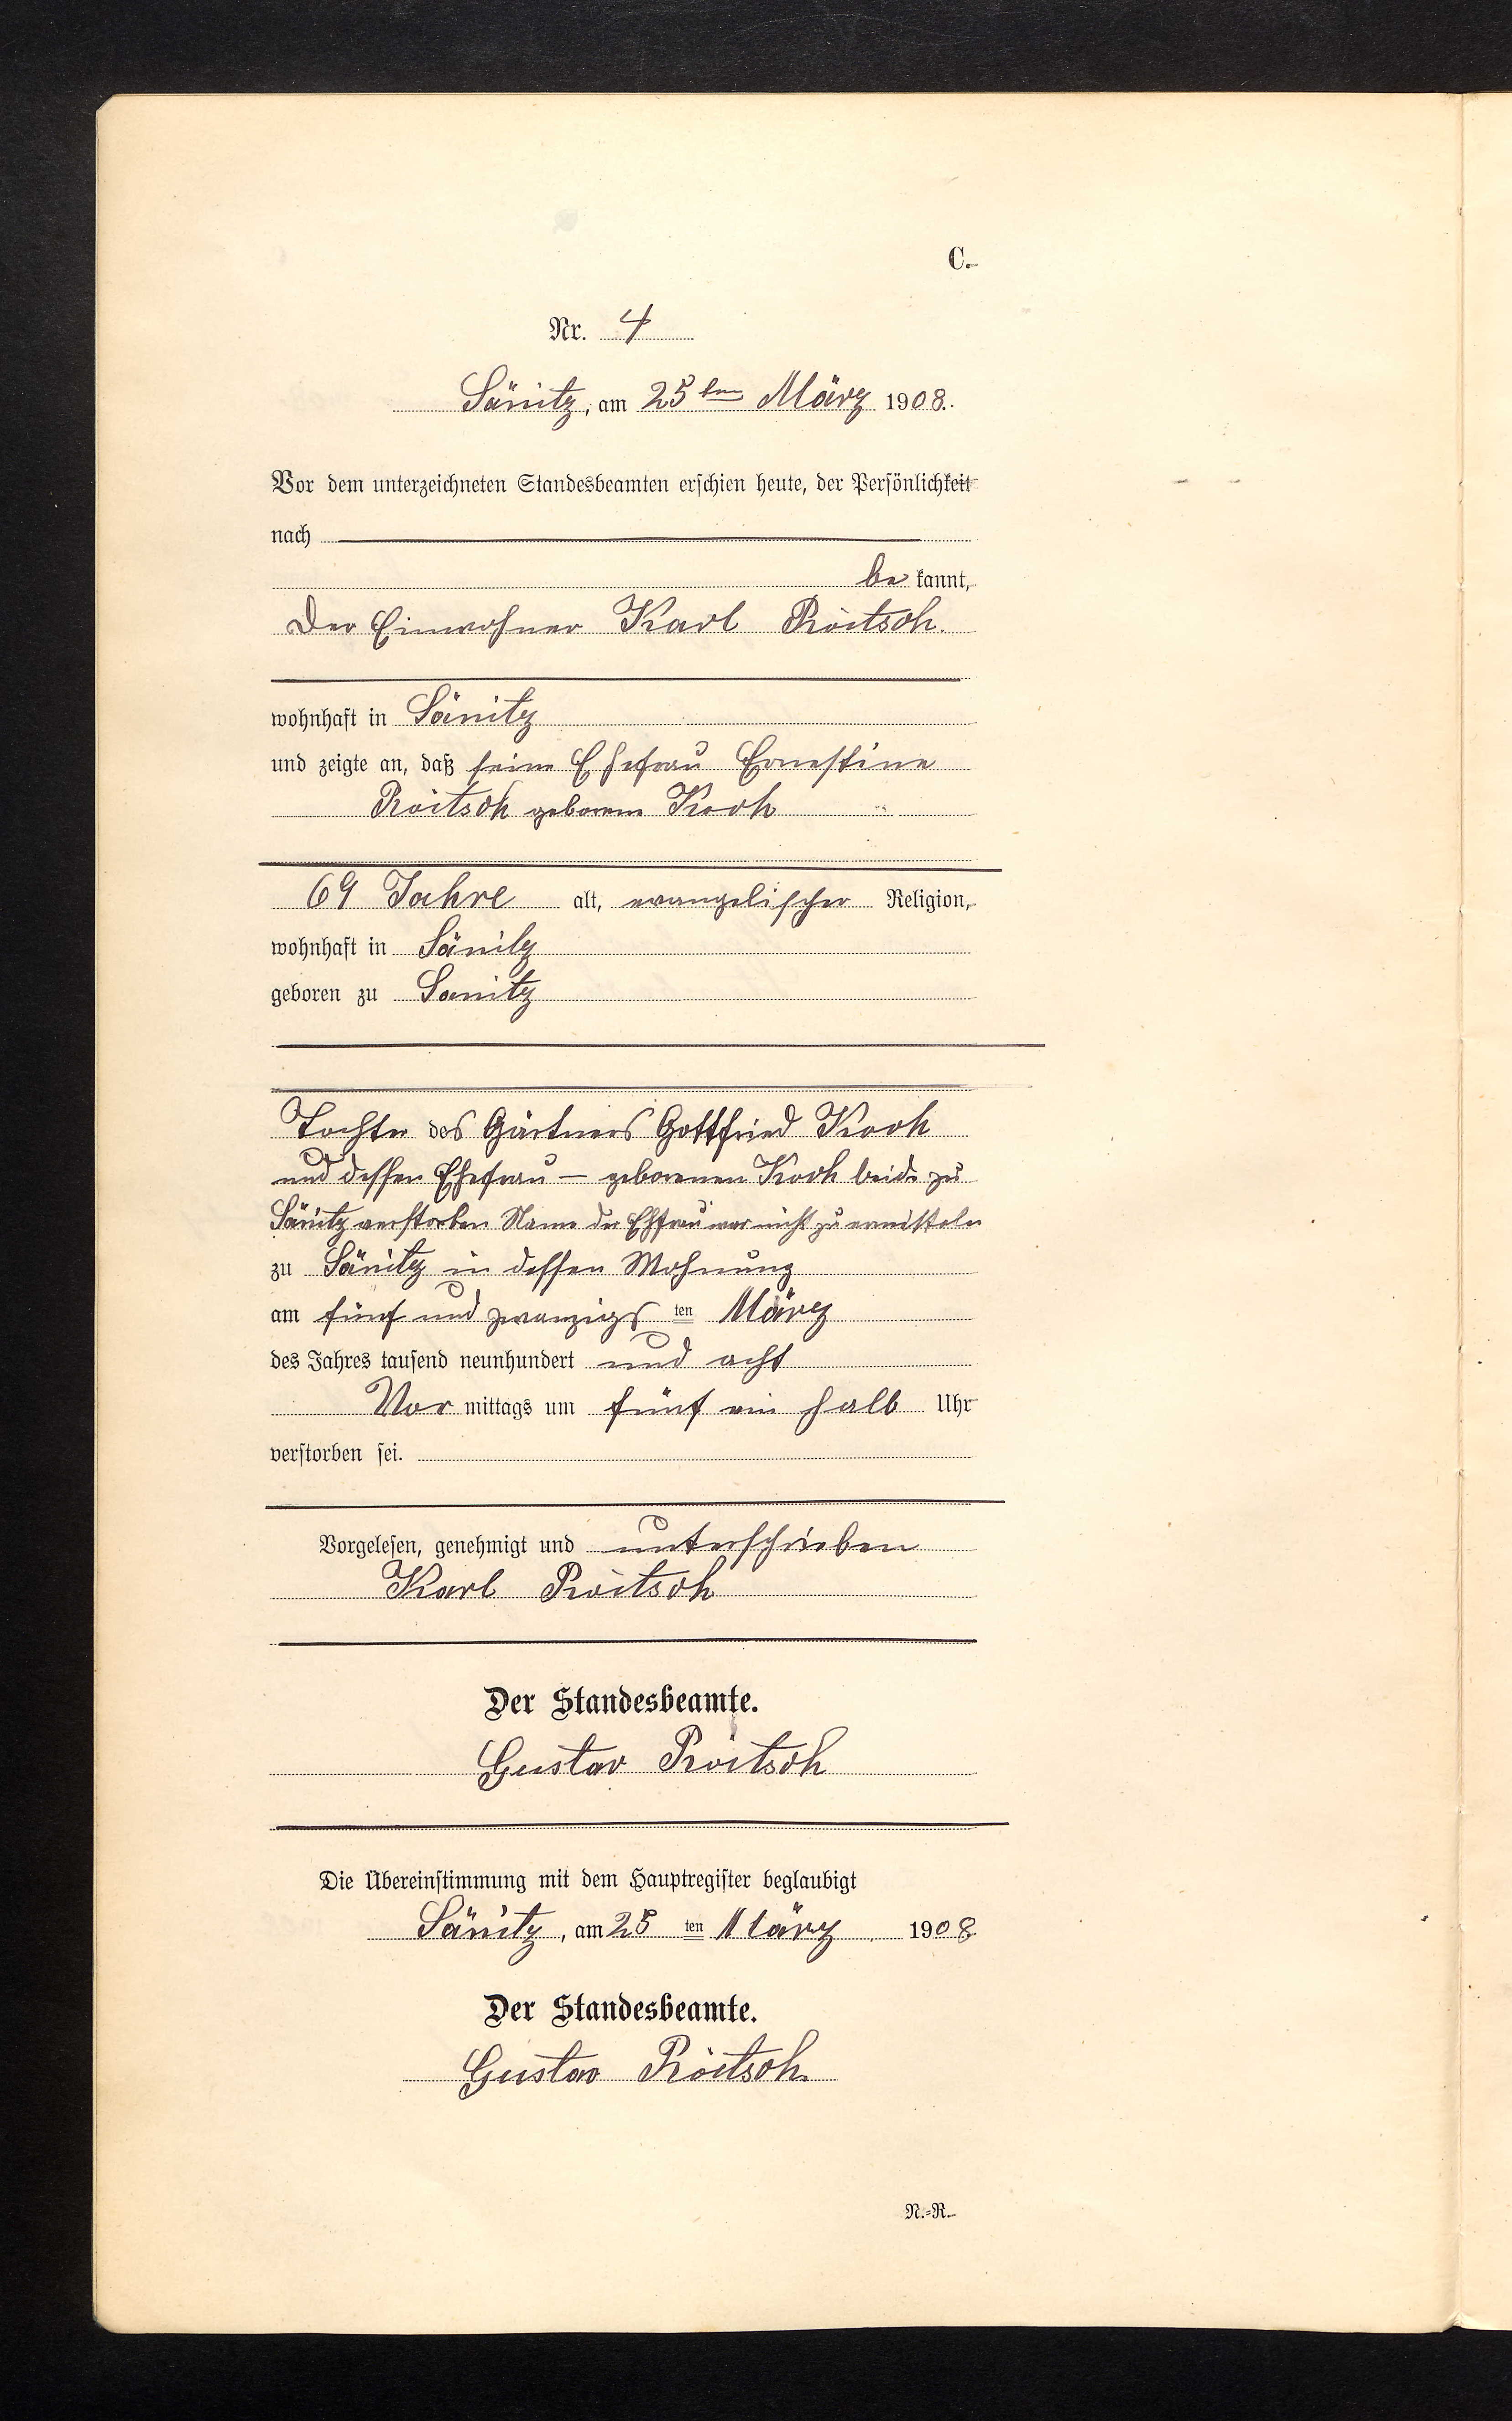 C.
Nr. 4
Sänitz, am 25ten März 1908.
Vor dem unterzeichneten Standesbeamten erschien heute, der Persönlichkeit
nach
be kannt,
Der Einwohner Karl Roitsch.
wohnhaft in Sänitz
und zeigte an, daß seine Ehefrau Ernestine
Roitsch geborene Koch
69 Jahre alt, evangelischer Religion,
wohnhaft in Sänitz
geboren zu Sänitz
Tochter des Gärtners Gottfried Koch
und dessen Ehefrau — geborenen Koch beide zu
Sänitz verstorben Name der Ehfrau war nicht zu ermitteln
zu Sänitz in dessen Wohnung
am fünf und zwanzigs ten März
des Jahres tausend neunhundert und acht
Vor mittags um fünf ein halb Uhr
verstorben sei.
Vorgelesen, genehmigt und unterschrieben
Karl Roitsch
Der Standesbeamte.
Gustav Roitsch
Die Übereinstimmung mit dem Hauptregister beglaubigt
Sänitz, am 25 ten März 1908
Der Standesbeamte.
Gustav Roitsch.
N.=R.